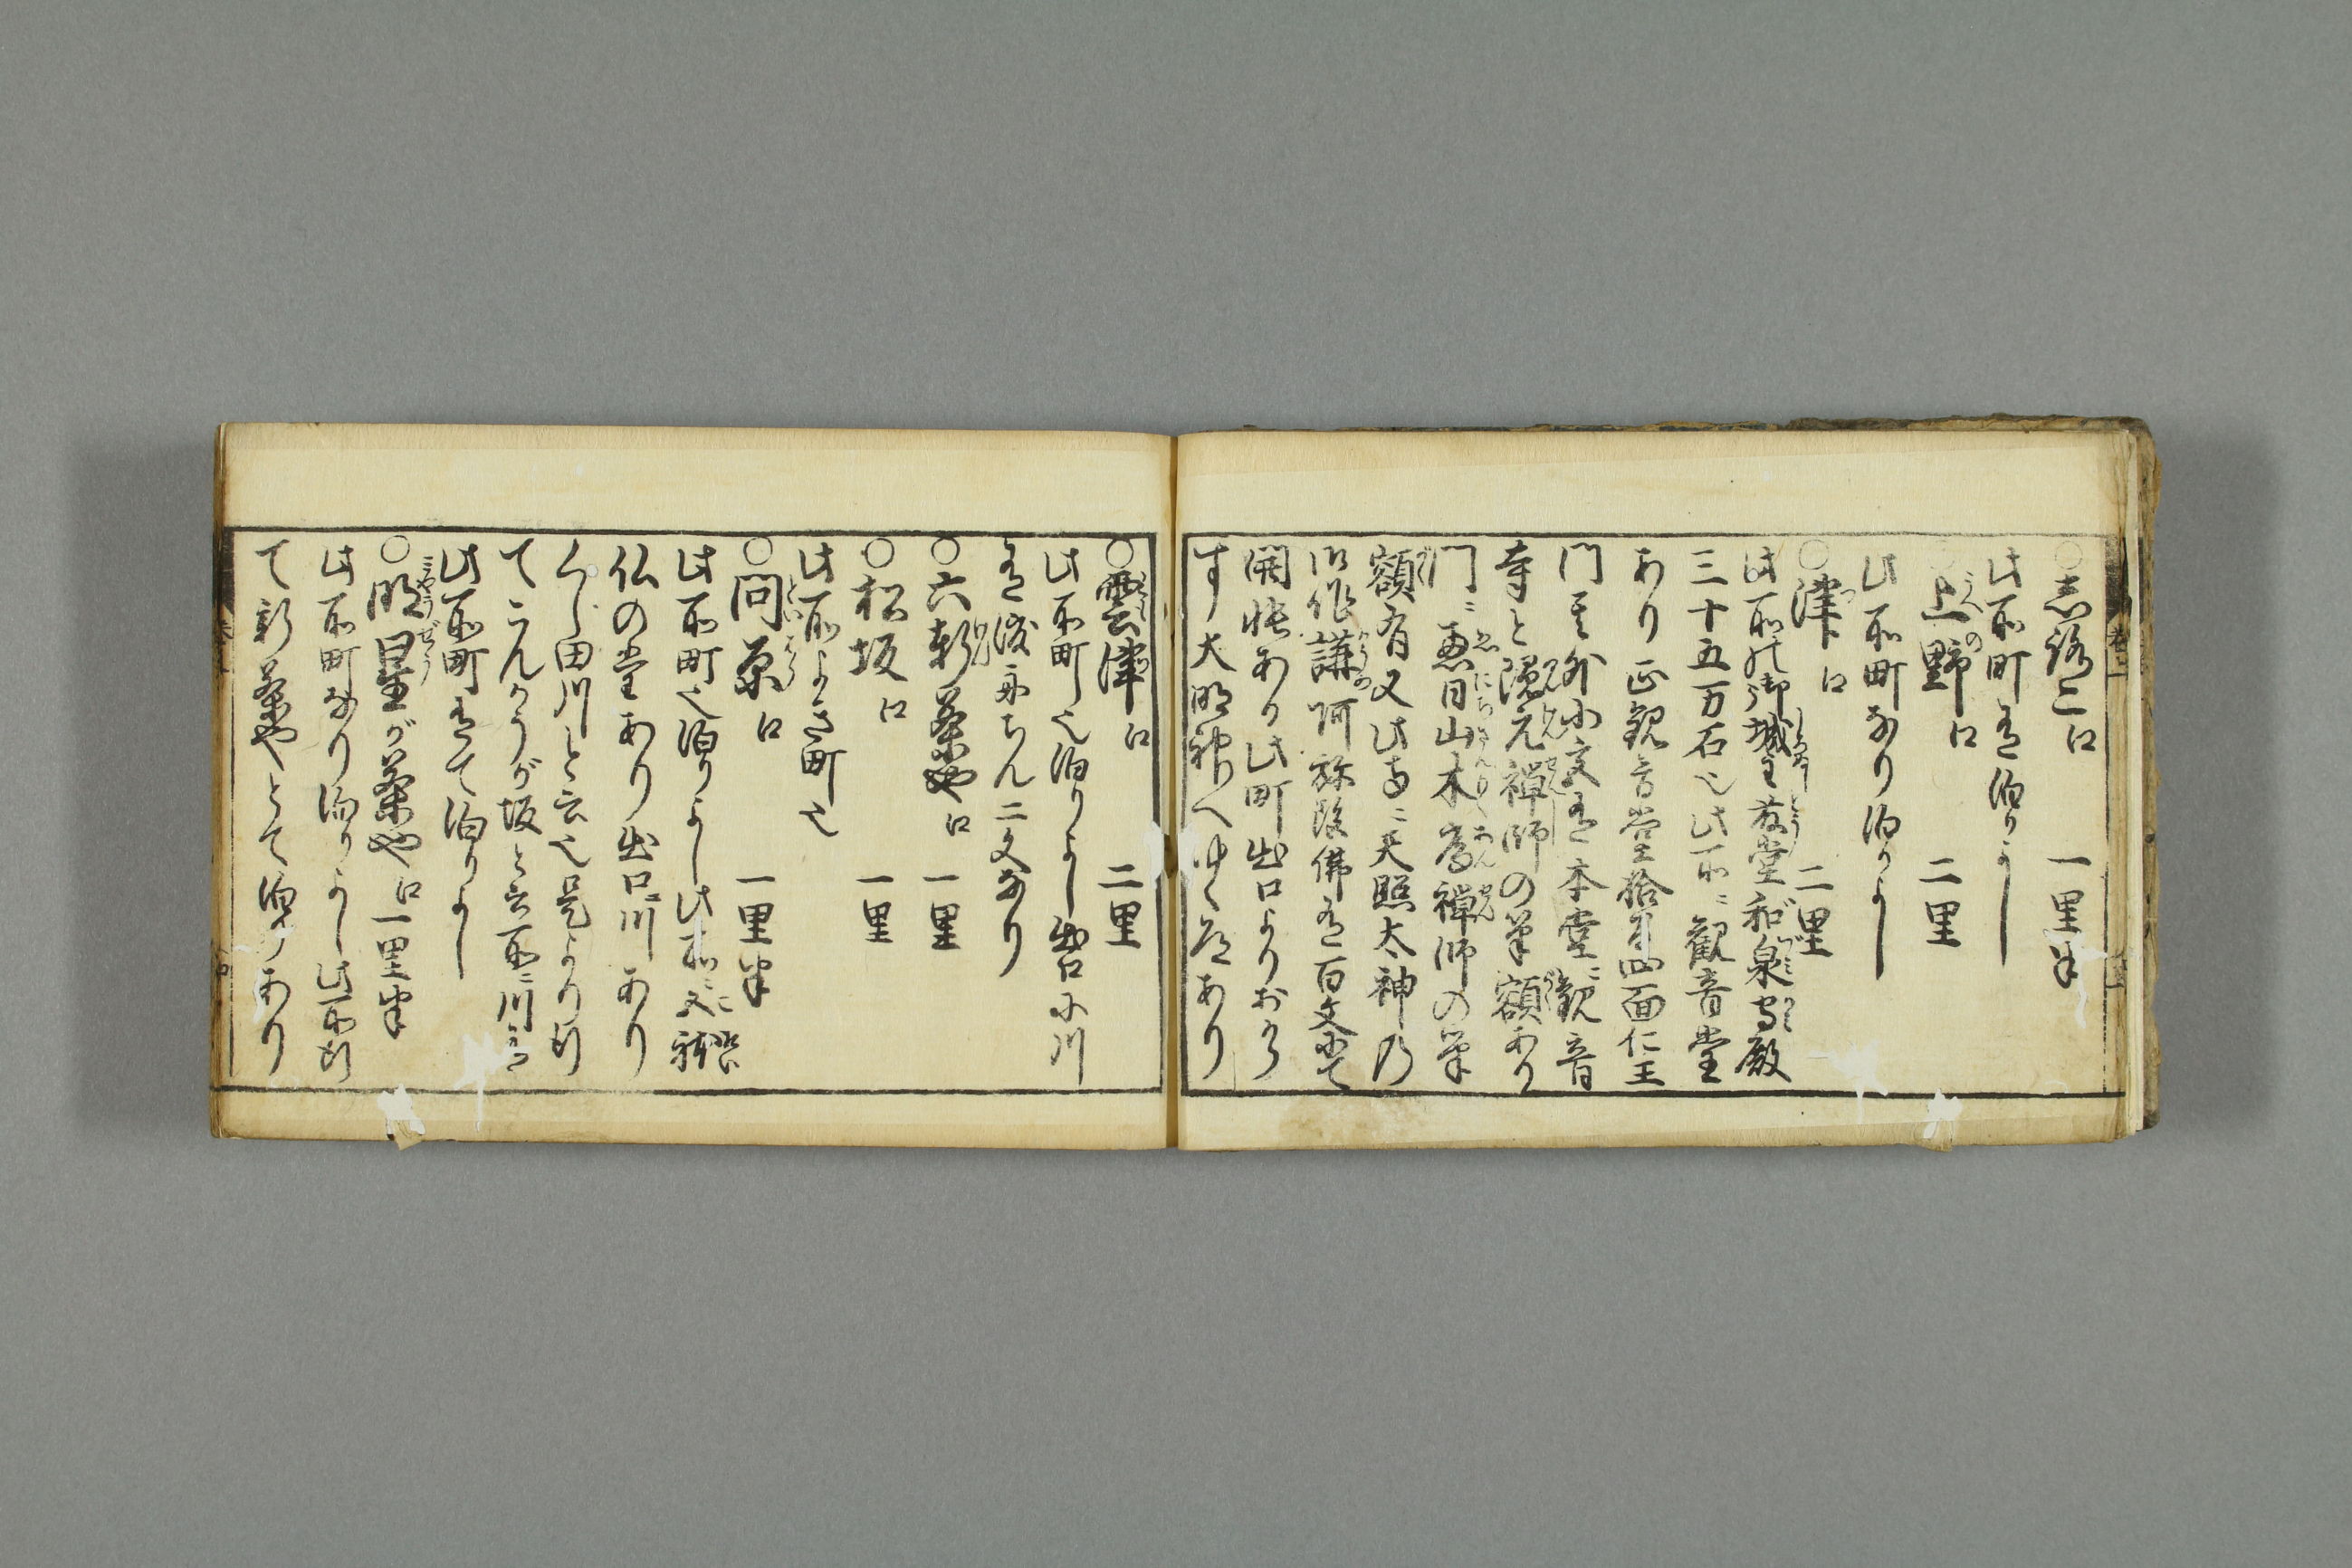 ○志路こ口 一里半
此所町有泊りよし
○上野口 二里
此所町なり泊りよし
○津口 二里
此所御城主藤堂和泉守殿
三十五万石也此所ニ観音堂
あり正観音堂拾弐四面仁王
門其外小交有本堂ニ観音
寺と隠元禅師の筆額あり
門ニ恵日山木庵禅師の筆
額有又此寺ニ天照太神乃
御作講阿弥陀佛有百文にて
開帳あり此町出口よりおか
す大明神へゆく道あり
○雲津口 二里
此所町也泊りよし出口に川
有渡舟ちん二文なり
○六軒茶や口 一里
○松坂口 一里
此所よき町也
○問原口 一里半
此所町也泊りよし此所ニ
仏の堂ありり出口ニ川あり
くし田川と云也是より行
てこんかうが坂と云所ニ川有
此所町有て泊りよし
○明星が茶や口 一里半
此所町なり泊りよし此所行
て新茶やとて泊りあり